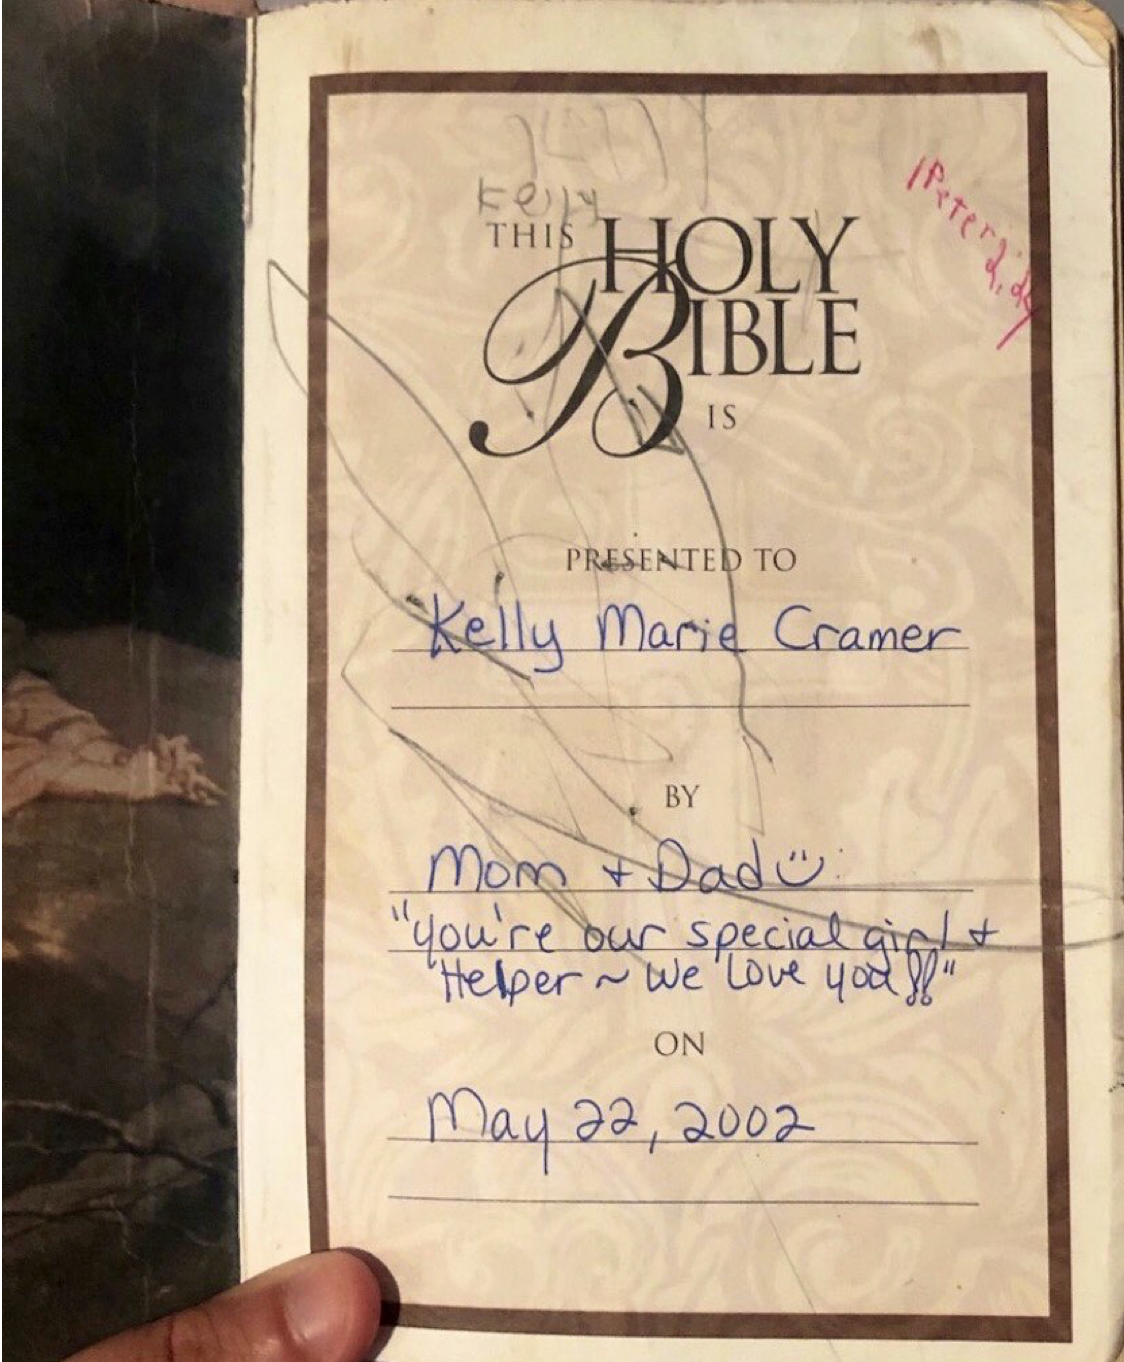 Kelly
THIS HOLY
BIBLE
IS
1 Peter 2:24
PRESENTED TO
Kelly Marie Cramer
BY
Mom + Dad
"you're our special girl +
Helper ~ We Love you!!"
ON
May 22, 2002